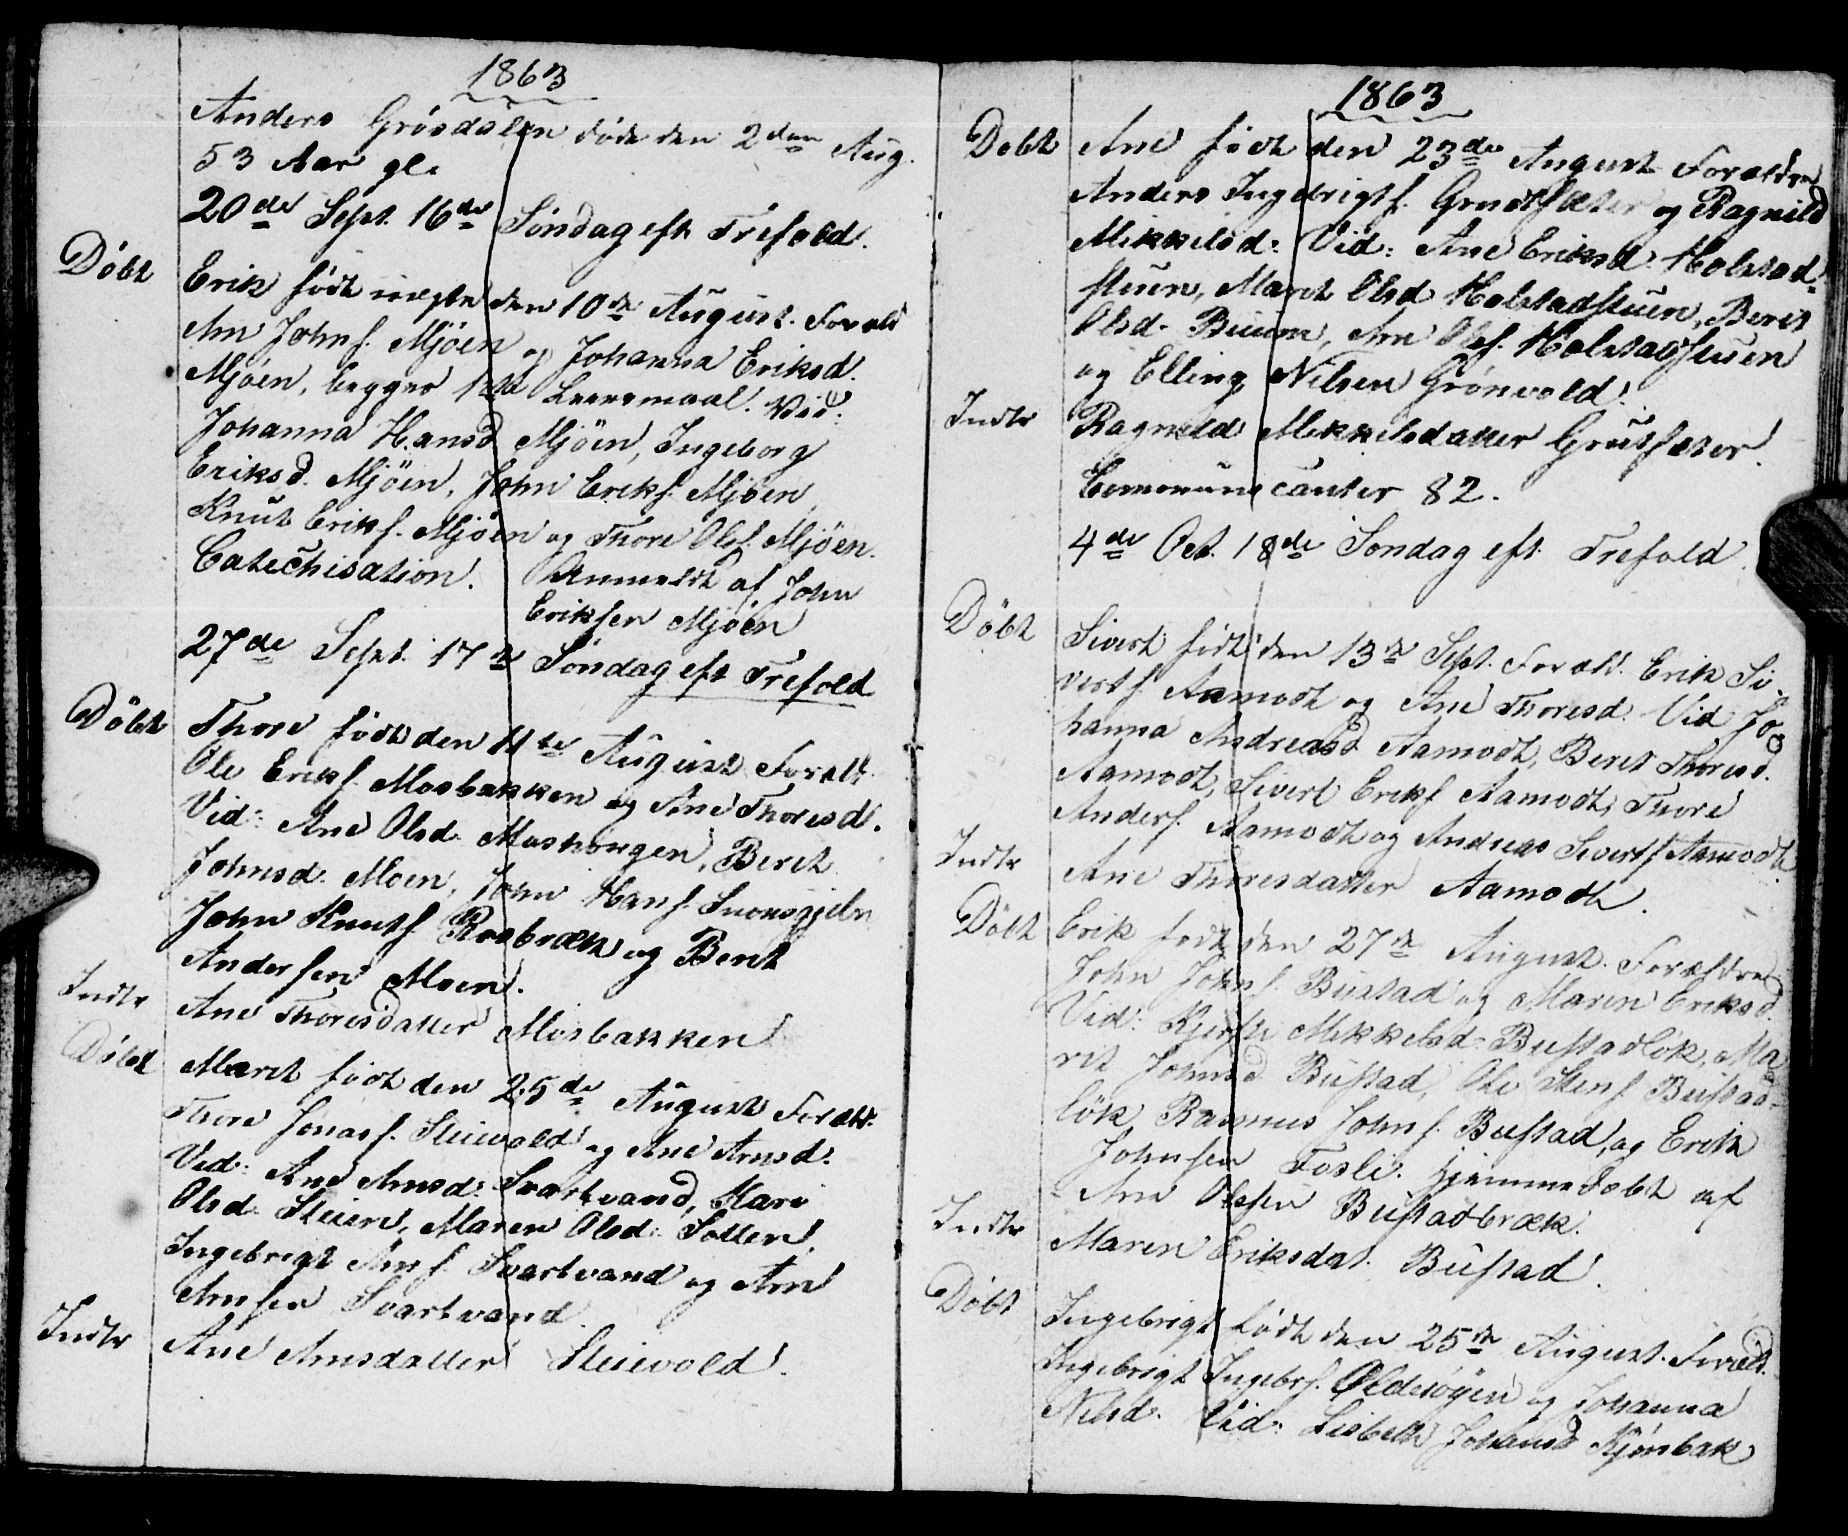 1863
Anders Grösdalen döde den 2den Aug.
53 Aar gl.
20de Sept. 16de Söndag eft Trefold.
Döbt Erik födt uægte den 10de August. Foræld
Arn Johnf. Mjöen og Johanna Eriksd.
Mjöen, begges 1ste Leiermaal. Vid:
Johanna Hansd Mjöen, Ingeborg
Eriksd. Mjöen, John Erikf. Mjöen,
Knut Erikf. Mjöen og Thore Olsf. Mjöen.
Catechisation. Anmeldt af John
Erikfen Mjöen
27de Sept. 17de Söndag eft Trefold
Döbt Thore födt den 11te August Foræld.
Ole Erikf. Mosbakken og Ane Thoresd.
Vid: Ane Olsd. Moshongen, Beret
Johnsd. Moen, John Hansf.
John Knutf. Rosbræk og Berit
Anderfen Moen.
Indtr Ane Thoresdatter Mosbakken
Döbt Maret födt den 25de August Foræld.
Thore Jonasf. Steievold og Ane Arnsd.
Vid: Ane Arnsd. Svartvand, Mari
Olsd. Steien, Maren Olsd. Sollen,
Ingebrigt Arnf. Svartvand og Arn
Arnfen Svartvand.
Indtr Ane Arnsdatter Steievold.
1863
Döbt Ane födt den 23de August Forældre
Anders Ingebrigtf. Grutfæter og Ragnild
Mikkelsd: Vid: Ane Eriksd. Holstad-
stuen, Marit Olsd Holstadstuen, Berit
Olsd. Buum, Arn Olsf. Holstadstuen
og Elling Nilsen Grönvold.
Indtr Ragnild Mikkelsdatter Grutfæter.
Communicanter 82.
4de Oct. 18de Söndag eft. Trefold.
Döbt Sivert födt den 13de Sept. Foræld. Erik Si-
vertf. Aamodt og Ane Thoresd. Vid Jo-
hanna Andreasd Aamodt, Beret Thoresd.
Aamodt, Sivert Erikf Aamodt, Thore
Anderf. Aamodt og Andreas Sivertf Aamodt.
Indtr Ane Thoresdatter Aamodt.
Döbt Erik födt den 27de August. Forældre
John Johnf. Bustad og Maren Eriksd.
Vid: Kjersti Mikkelsd. Bustadlök, Ma
rit Johnsd Bustad, Ole Stenf. Bustad-
lök, Rasmus Johnf. Bustad, og Erik
Johnfen Fosli. Hjemmedöbt af
Arn Olsfen Bustadbræk.
Indtr Maren Eriksdat. Bustad.
Döbt Ingebrigt födt den 25de August. Foræld.
Ingebrigt Ingebrf. Oldesöyen og Johanna
Nilsd. Vid: Lisbeth Johansd Kjönbak